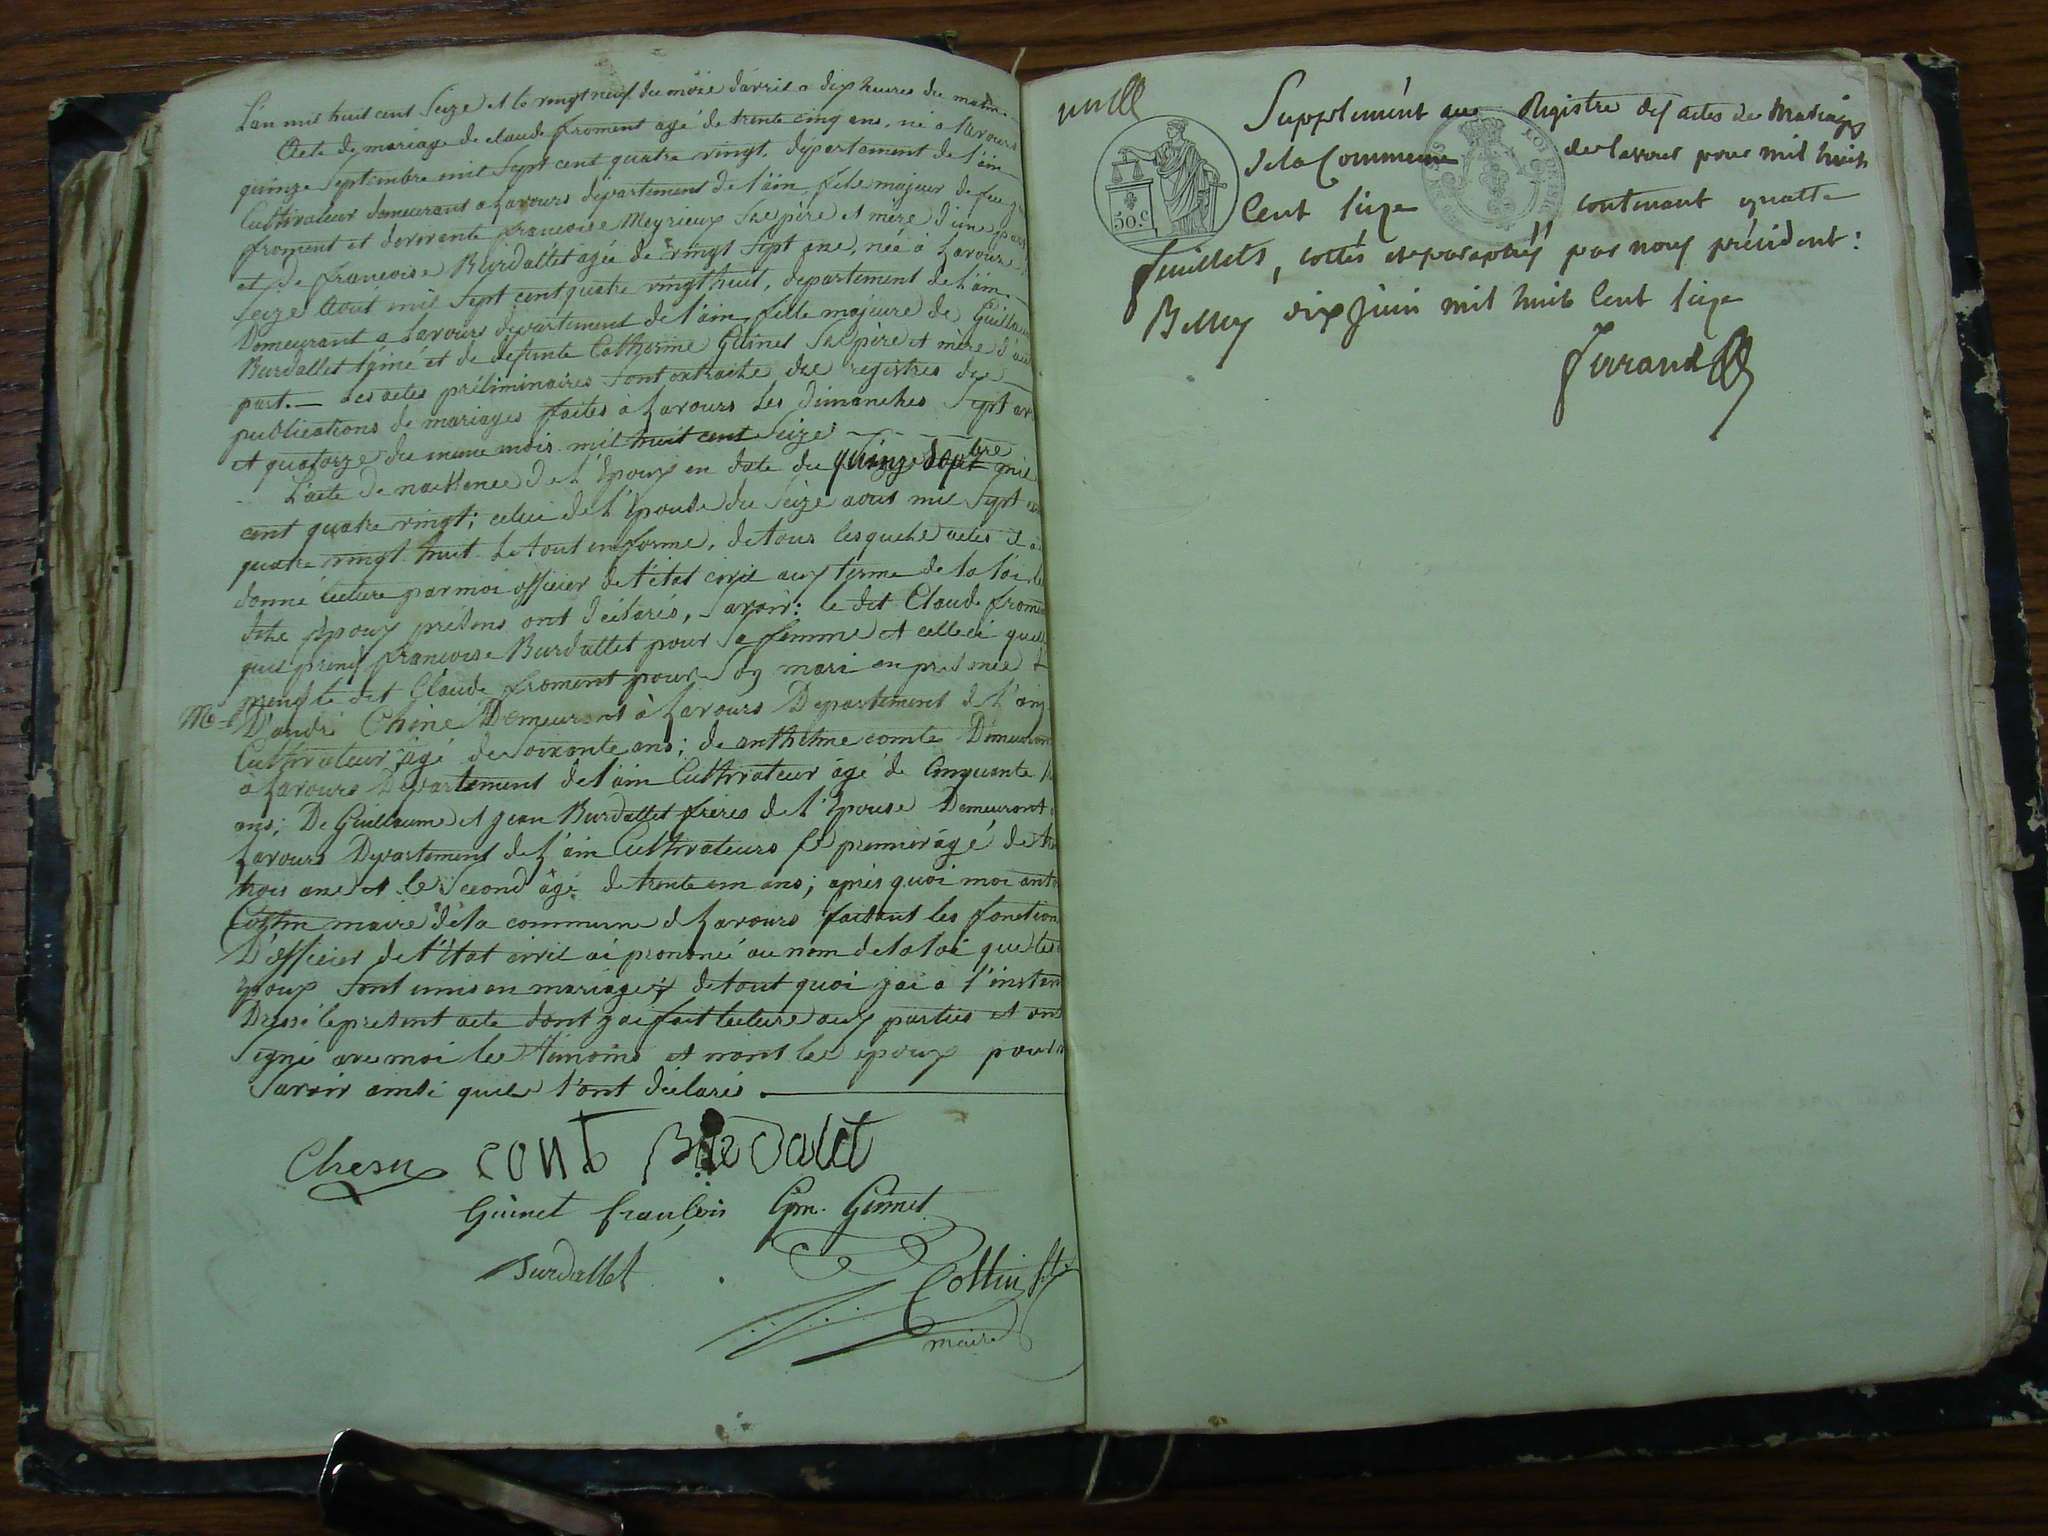 L'an mil huit cent Seize et le vingt neuf du mois d'avril a dix heures du matin
Acte de mariage de claude froment agé de trente cinq ans, né a Lavours
quinze Septembre mil Sept cent quatre vingt, departement de l'ain
Cultivateur demeurant a Lavours departement de l'ain, fils majeur de feu
froment et de vivente francoise Meyrieux Ses père et mère d'une part
et de francoise Burdallet agée de vingt Sept ans, née à Lavours
Seize Aout mil Sept cent quatre vingt huit, departement de l'ain
Demeurant a Lavours departement de l'ain, fille majeure de Guillaume
Burdallet et de defunte Catherine Guinet Ses père et mère d'autre
part. — Les actes préliminaires Sont extraits des registres des
publications de mariages faites à Lavours Les Dimanches Sept
et quatorze du meme mois mil huit cent Seize
L'acte de naissence de l'Epoux en date du quinze Septbre mil
cent quatre vingt; celui de l'Epouse du Seize aout mil Sept cent
quatre vingt huit Le tout en forme, de tous lesquels actes il a
donné lecture par moi officier de l'état civil aux terme de la loi, les
dits Epoux présens ont déclarés, Savoir: le dit Claude froment
quil prend francoise Burdallet pour Sa femme et celle ci quelle
prend le dit Claude froment pour Son mari en présence
Mr D'andré Chêne Demeurant à Lavours Departement de l'ain
Cultivateur âgé de Soixante ans; de anthelme comte Demeurant
à Lavours Departement de l'ain Cultivateur âgé de Cinquante
ans; De Guillaume et jean Burdallet freres de l'Epouse Demeurant
Lavours Departement de l'ain Cultivateurs le premier âgé de
trois ans et le Second âgé de trente un ans; après quoi moi
Cottin maire de la commune de Lavours faisant les fonctions
D'officier de l'Etat civil ai prononcé au nom de la loi que les
époux Sont unis en mariage; de tout quoi j'ai a l'instant
Dressé le present acte dont j'ai fait lecture aux parties et ont
Signé avec moi les témoins et non les epoux pour
Savoir ainsi quils l'ont déclarés
Chesne cont Burdalet
Guinet françois Gme. Guinet
Burdallet
Cottin
maire
50 c
Supplément au Registre des actes de Mariages
de la Commune de lavour pour mil huit
Cent Seize contenant quatre
feuillets, cottés et paraphés par nous président:
Belley dix Juin mil huit Cent Seize
ferrand